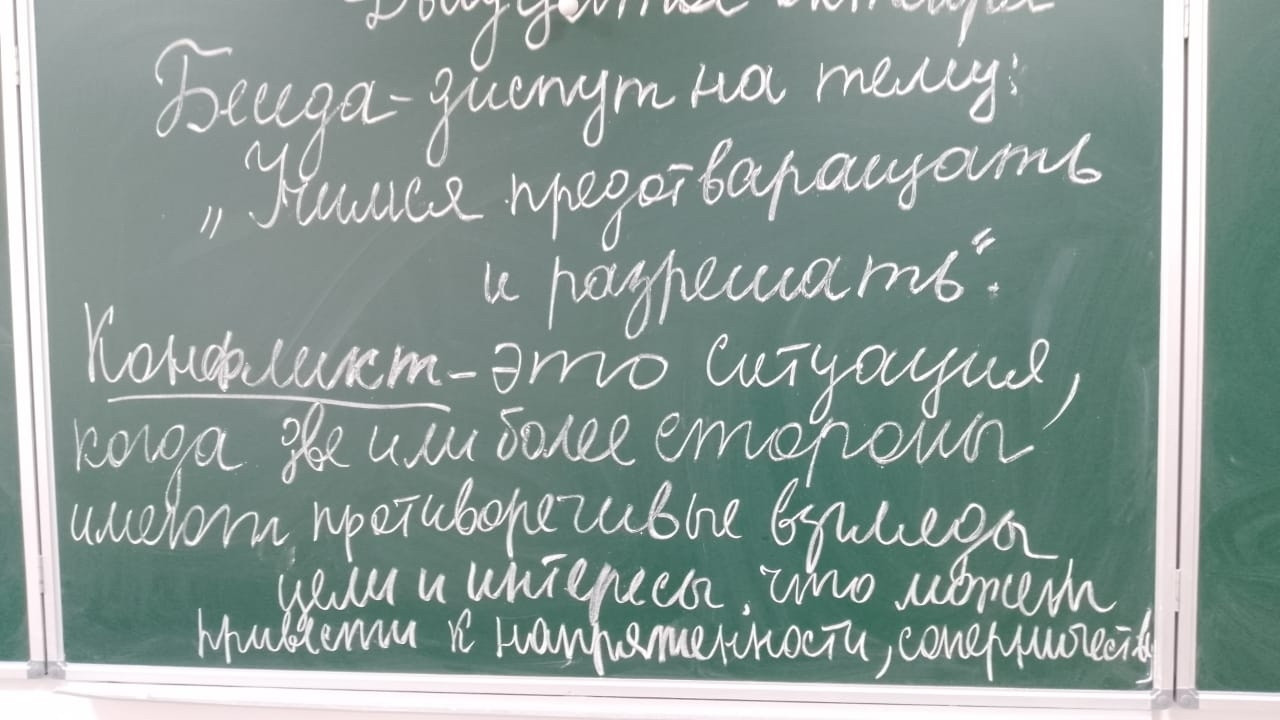 Двадцатое октября
Беседа-диспут на тему:
„Учимся предотваращать
и разрешать“.
Конфликт - это ситуация,
когда две или более стороны
имеют противоречивые взгляды
цели и интересы, что может
привести к напряженности, соперничеству